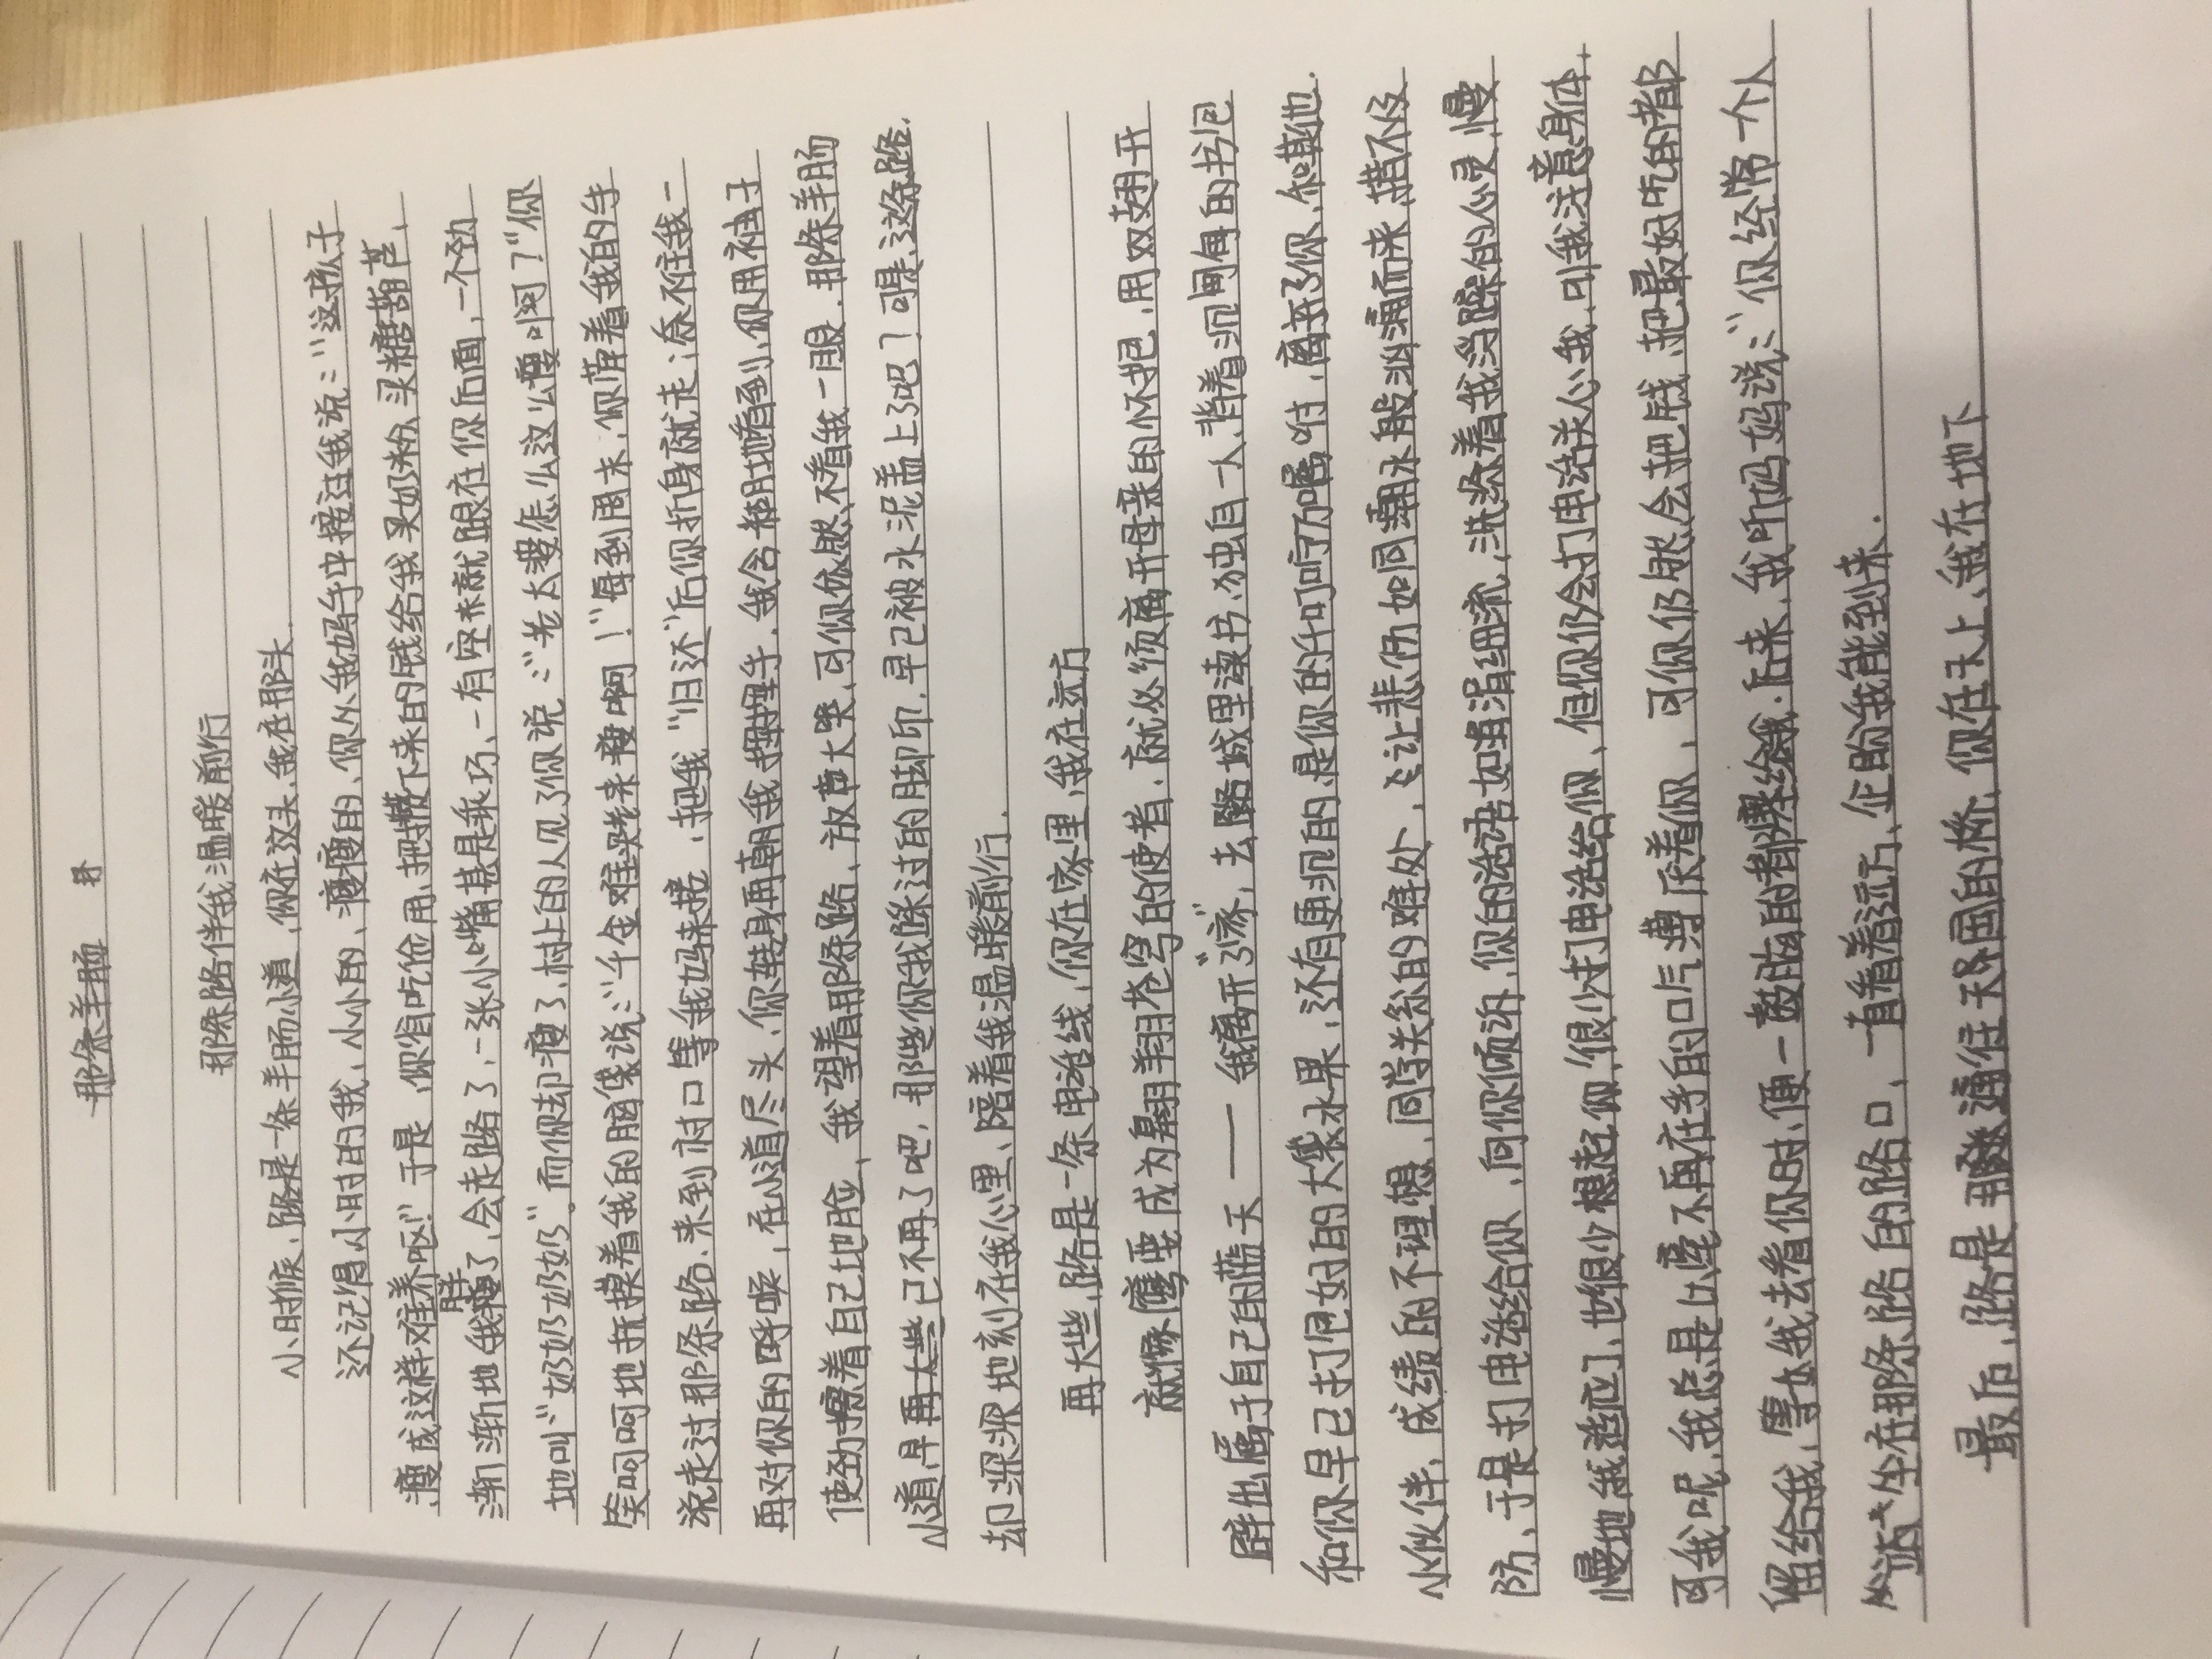 那条羊肠
那条路伴我温暖前行
小时候，路是一条羊肠小道，你在这头，我在那头．
还记得小时的我，小小的、瘦瘦的，你从我妈手中接过我说：“这孩子
瘦成这样难养呕！”于是，你省吃俭用，把攒下来的钱给我买奶粉、买糖葫芦，
渐渐地我胖了，会走路了，一张小嘴甚是乖巧，一有空来就跟在你后面，一个劲
地叫“奶奶奶奶”。而你却瘦了，村上的人见了你说：“老太婆怎么这么瘦啊？”你
笑呵呵地抚摸着我的脑袋说：“千金难买老来瘦啊！”每到周末，你带着我的手
说走过那条路，来到村口等我妈来接，把我“归还”后你扭身就走，奈不住我一
再对你的呼唤，在小道尽头，你转身再朝我挥挥手，我含糊地看到，你用袖子
使劲擦着自己地脸，我望着那条路，放声大哭，可你依然不看我一眼．那条羊肠
小道早已不再了吧，那些你我踩过的脚印，早已被水泥盖上了吧？可是，这条路，
却深深地刻在我心里、陪着我温暖前行．
再大些，路是一条电话线，你在家里，我在远方
就像鹰要成为翱翔苍穹的使者，就必须离开母亲的怀抱，用双翅开
辟出属于自己的蓝天——我离开了“家”，去县城里读书，独自一人，背着沉甸甸的书包
和你早已打包好的大袋水果，还有更沉的，是你的千叮咛万嘱咐，离开了你，和其他
小伙伴，成绩的不理想，同学关系的难处，让悲伤如同潮水般汹涌而来，措不及
防，于是打电话给你，向你倾诉，你的话语如涓涓细流，洗涤着我浮躁的心灵，慢
慢地我适应了，也很少想起你，很少打电话给你，但你仍会打电话关心我，叫我注意身体，
可我呢，我总是以毫不再在乎的口气薄厌着你，可你仍然会把钱，把最好吃的都
留给我，等女我去看你时，便一股脑的都塞给我．后来，我听妈妈说：“你经常一个人
坐在那条路的路口，一直看着远方，企盼我能到来．
最后，路是那条通往天国的桥，你在天上，我在地下